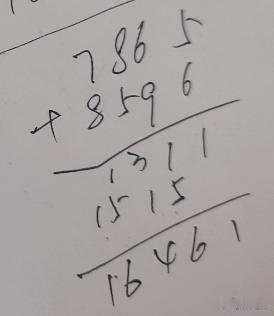 7865
+ 8596
1311
1515
16461